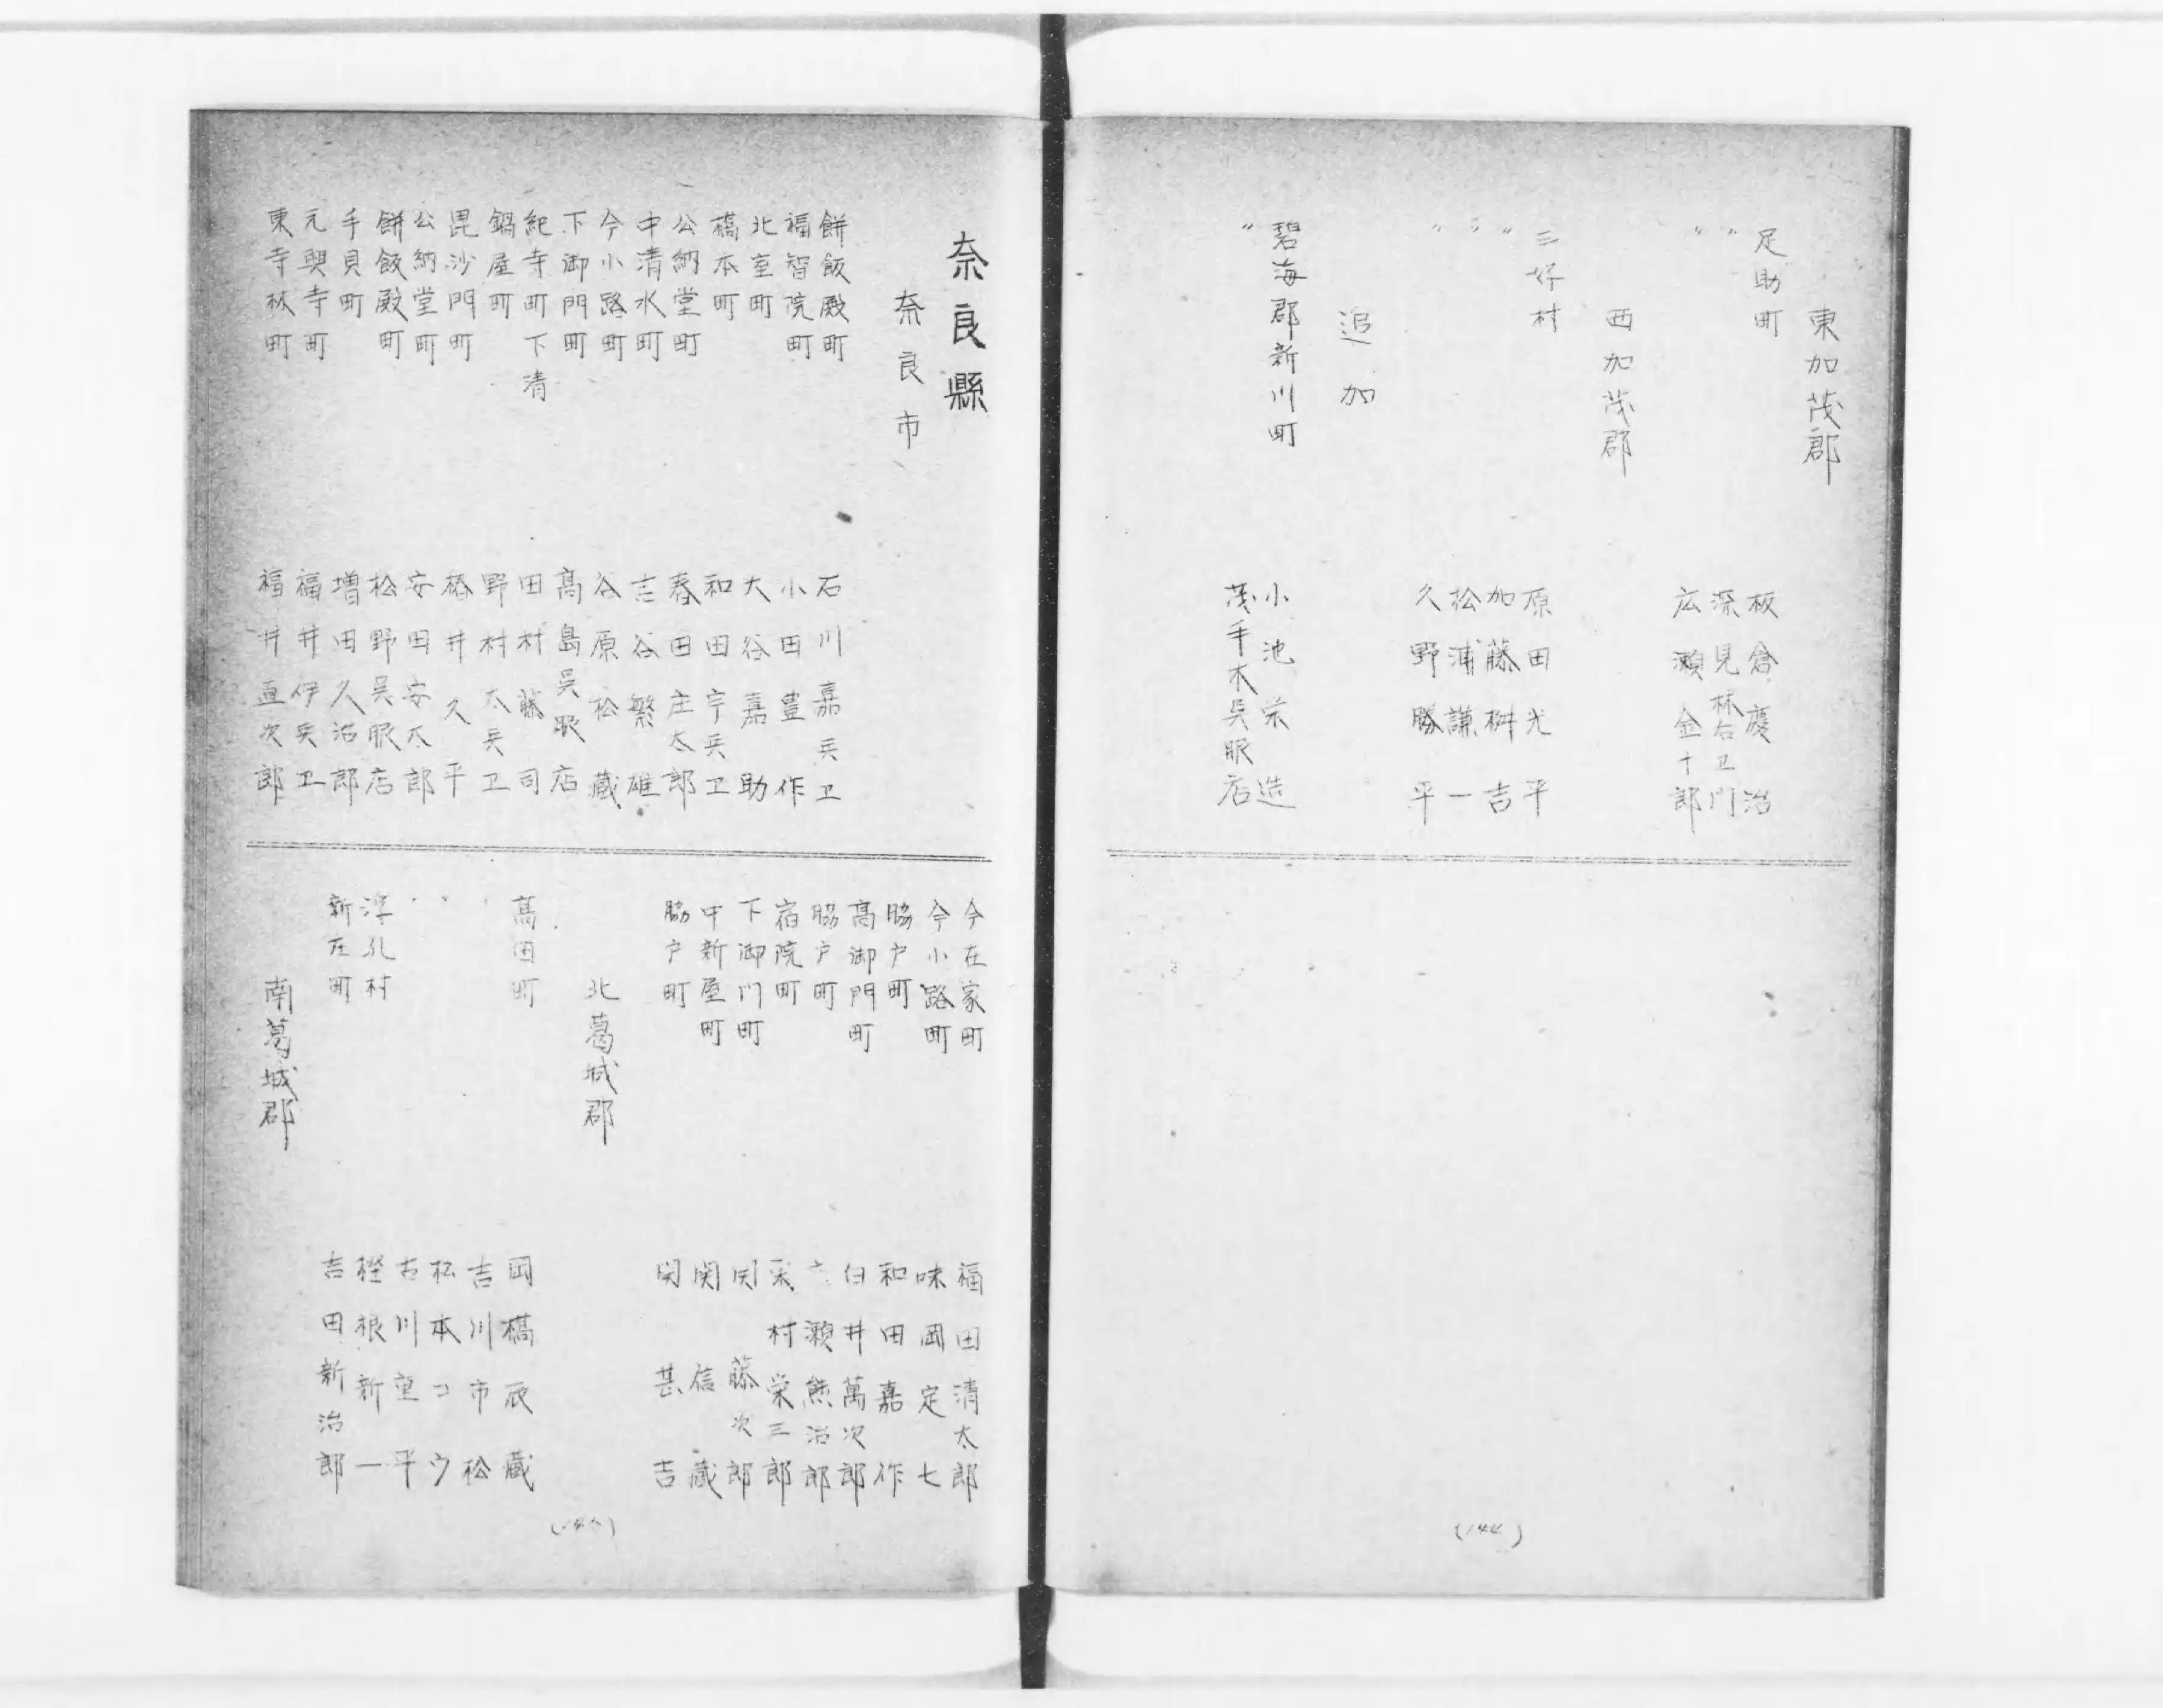 東加茂郡
足助町 板倉慶治
〃 深見林右卫門
〃 広瀬金十郎
西加茂郡
三好村 原田光平
〃 加藤桝吉
〃 松浦謙一
〃 久野勝平
追加
碧海郡新川町 小池栄造
〃 茂手木呉服店
(144)
奈良縣
奈良市
餅飯殿町 石川嘉兵卫
福智院町 小田豊作
北室町 大谷嘉助
橋本町 和田宇兵卫
公納堂町 春田庄太郎
中清水町 吉谷繁雄
今小路町 谷原松蔵
下御門町 髙島呉服店
紀寺町下清 田村藤司
鍋屋町 野村太兵卫
毘沙門町 椿井久平
公納堂町 安田安太郎
餅飯殿町 松野呉服店
手貝町 増田久治郎
元興寺町 福井伊矢卫
東寺林町 福井直次郎
今在家町 福田清太郎
今小路町 味岡定七
脇戸町 和田嘉作
髙御門町 臼井萬次郎
脇戸町 瀬熊治郎
宿院町 村栄三郎
下御門町 関藤次郎
中新屋町 関信蔵
脇戸町 関甚吉
北葛城郡
髙田町 岡橋辰蔵
〃 吉川市松
〃 松本コウ
〃 古川重平
浮孔村 樫根新一
新庄町 吉田新治郎
南葛城郡